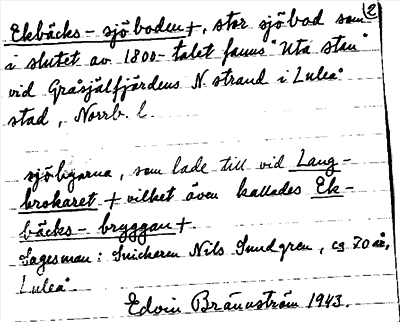 2
Ekbäcks-sjöboden +, stor sjöbod som
i slutet av 1800-talet fanns "Uta stan"
vid Gråsjälfjärdens N. strand i Luleå
stad, Norrb. l.
sjöbyarna, som lade till vid Lang-
brokaret + vilket även kallades Ek-
bäcks-bryggan +
Sagesman: Snickaren Nils Sundgren, ca 70 år,
Luleå.
Edvin Brännström 1943.